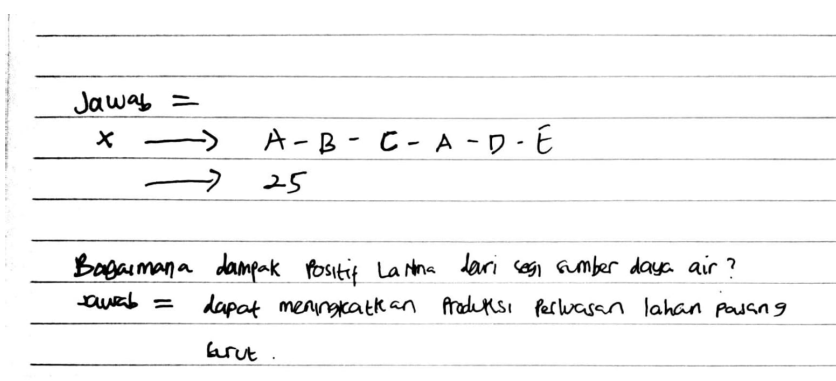 Jawab =
x → A - B - C - A - D - E
→ 25
Bagaimana dampak Positif La Nina dari segi sumber daya air?
Jawab = dapat meningkatkan Produksi Perluasan lahan pasang
surut.